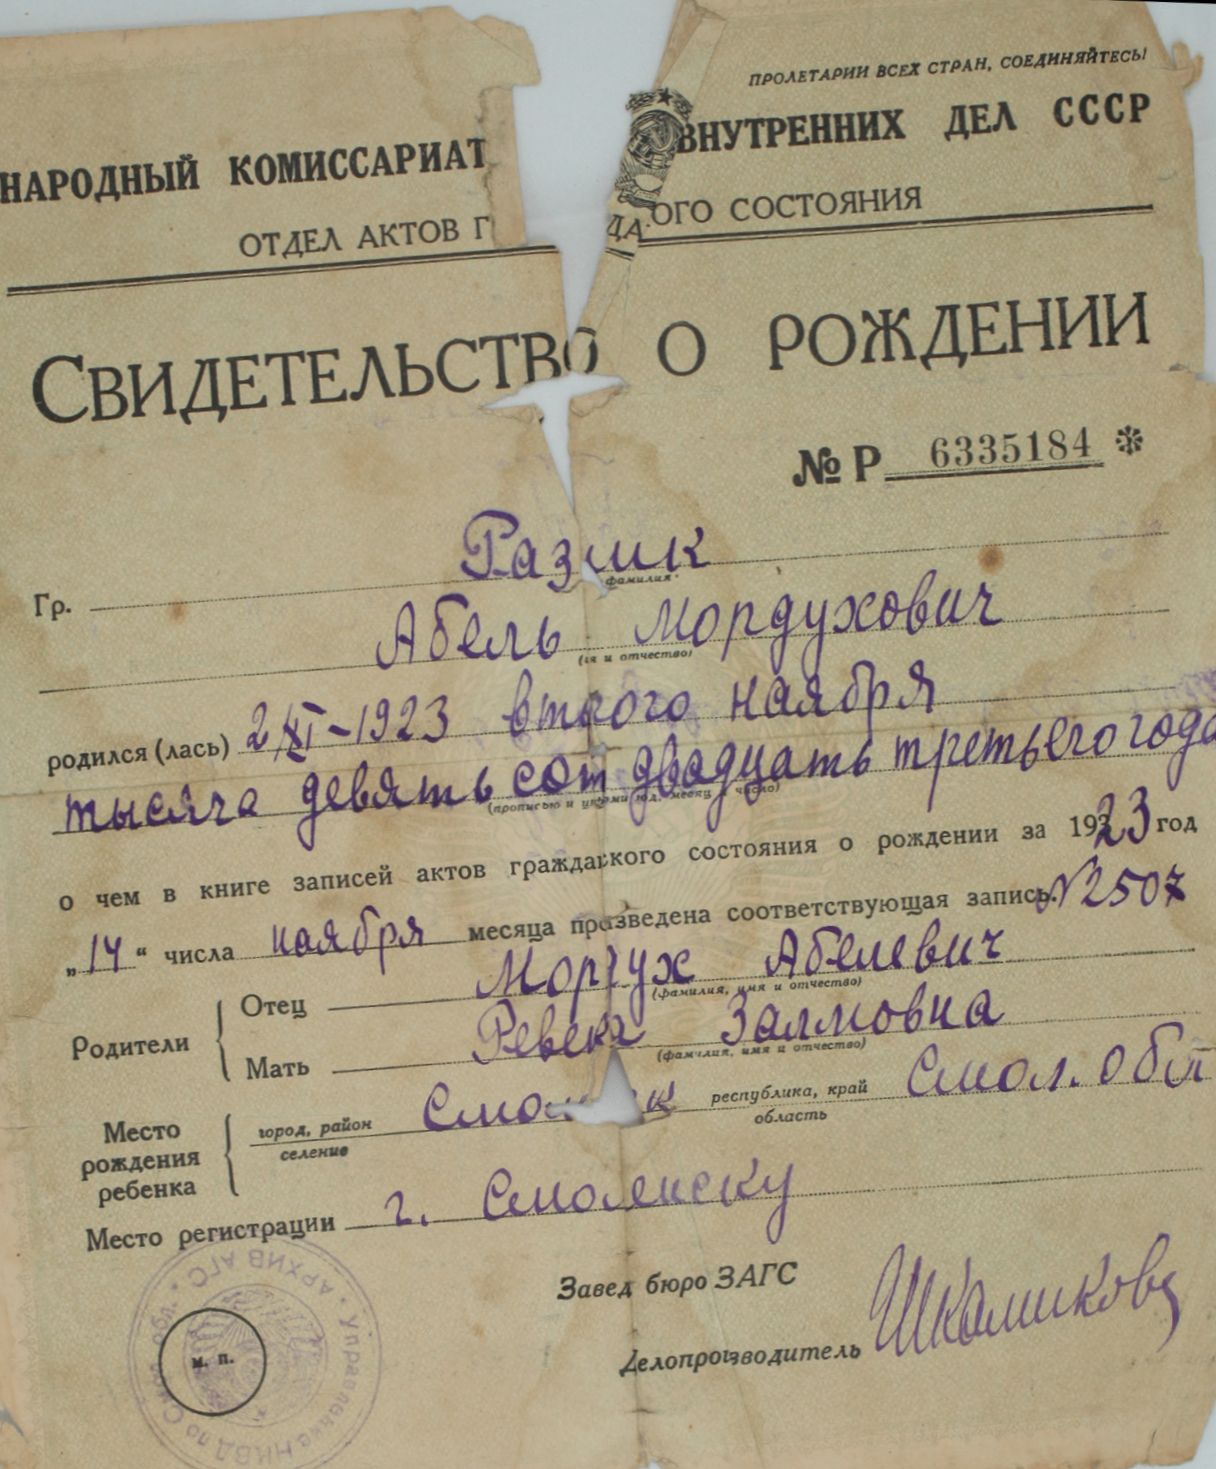 ПРОЛЕТАРИИ ВСЕХ СТРАН, СОЕДИНЯЙТЕСЬ!
НАРОДНЫЙ КОМИССАРИАТ ВНУТРЕННИХ ДЕЛ СССР
ОТДЕЛ АКТОВ Г ДА ОГО СОСТОЯНИЯ
СВИДЕТЕЛЬСТВО О РОЖДЕНИИ
№ Р 6335184 *
Гр. Разник
фамилия
Абель Мордухович
(мя и отчество)
родился (лась) 2/XI-1923 второго наября
тысяча девять сот двадцать третьего года
(прописью и цифрами год, месяц и число)
о чем в книге записей актов гражданского состояния о рождении за 1923 год
„14“ числа наября месяца произведена соответствующая запись. №2507
Родители
Отец Мордух Абелевич
(фамилия, имя и отчество)
Мать Ревека Залмовна
(фамилия, имя и отчество)
Место рождения ребенка
город, район селение Смоленск республика, край область Смол. обл
Место регистрации г. Смоленску
Завед бюро ЗАГС
Делопроизводитель
м. п.
АРХИВ АГС Управление НКВД по Смол. обл.